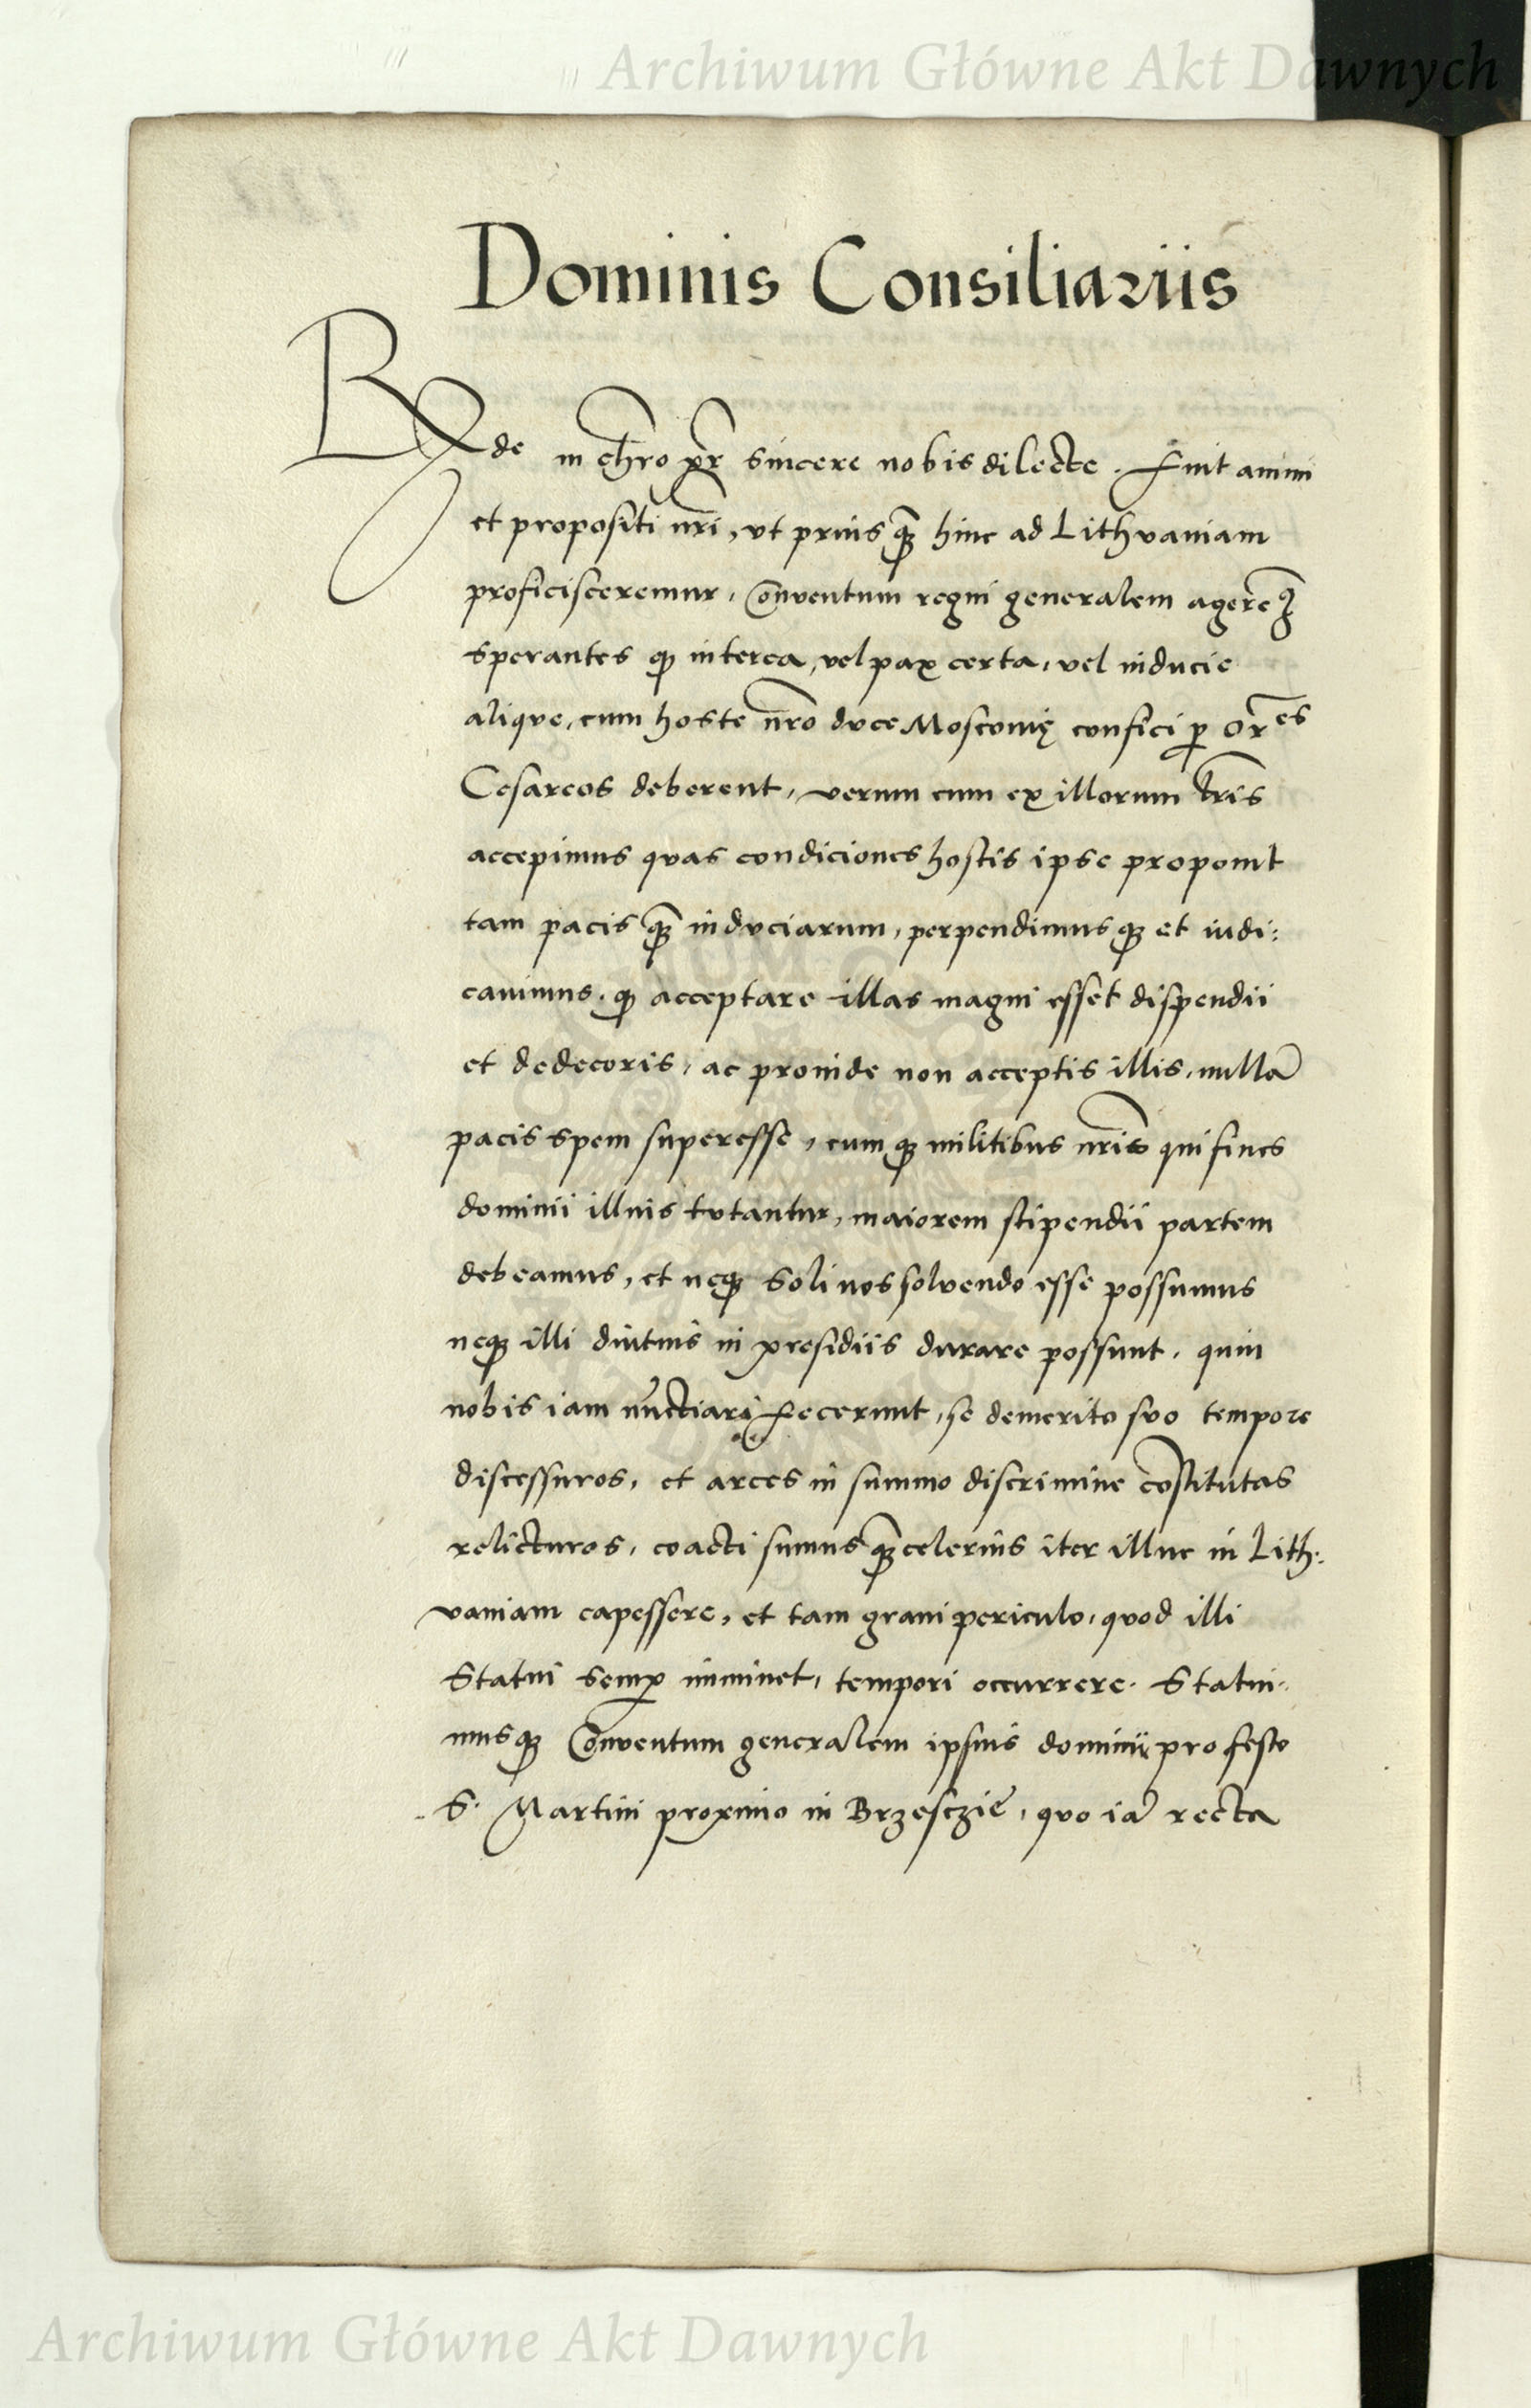 Archiwum Główne Akt Dawnych
Dominis Consiliariis
Rde in chro pr sincere nobis dilecte. Fuit animi
et propositi nri, vt prius q̃ hinc ad Lithvaniam
proficisceremur, Conventum regni generalem ageremꝰ
sperantes qꝫ interea, vel pax certa, vel inducie
aliqve, cum hoste nro dvce Moscouię confici p ores
Cesareos deberent, verum cum ex illorum lris
accepimus qvas condiciones hostis ipse proponit
tam pacis q̃ indvciarum, perpendimusqꝫ et iudi:
cauimus. qꝫ acceptare illas magni esset dispendii
et dedecoris, ac proinde non acceptis illis, nullã
pacis spem superesse, cumqꝫ militibus nris qui fines
dominii illius tvtantur, maiorem stipendii partem
debeamus, et neqꝫ soli nos solvendo esse possumus
neqꝫ illi diutius in presidiis durare possunt, quin
nobis iam nunctiari fecerunt, se demerito svo tempore
discessuros, et arces in summo discrimine cõstitutas
relicturos, coacti sumus q̃ celerius iter illuc in Lith:
vaniam capessere, et tam graui periculo, qvod illi
Statui semp imminet, tempori occurrere. Statui:
musqꝫ Conventum generalem ipsius dominii pro festo
S. Martini proximo in Brzesczie, qvo iã recta
Archiwum Główne Akt Dawnych